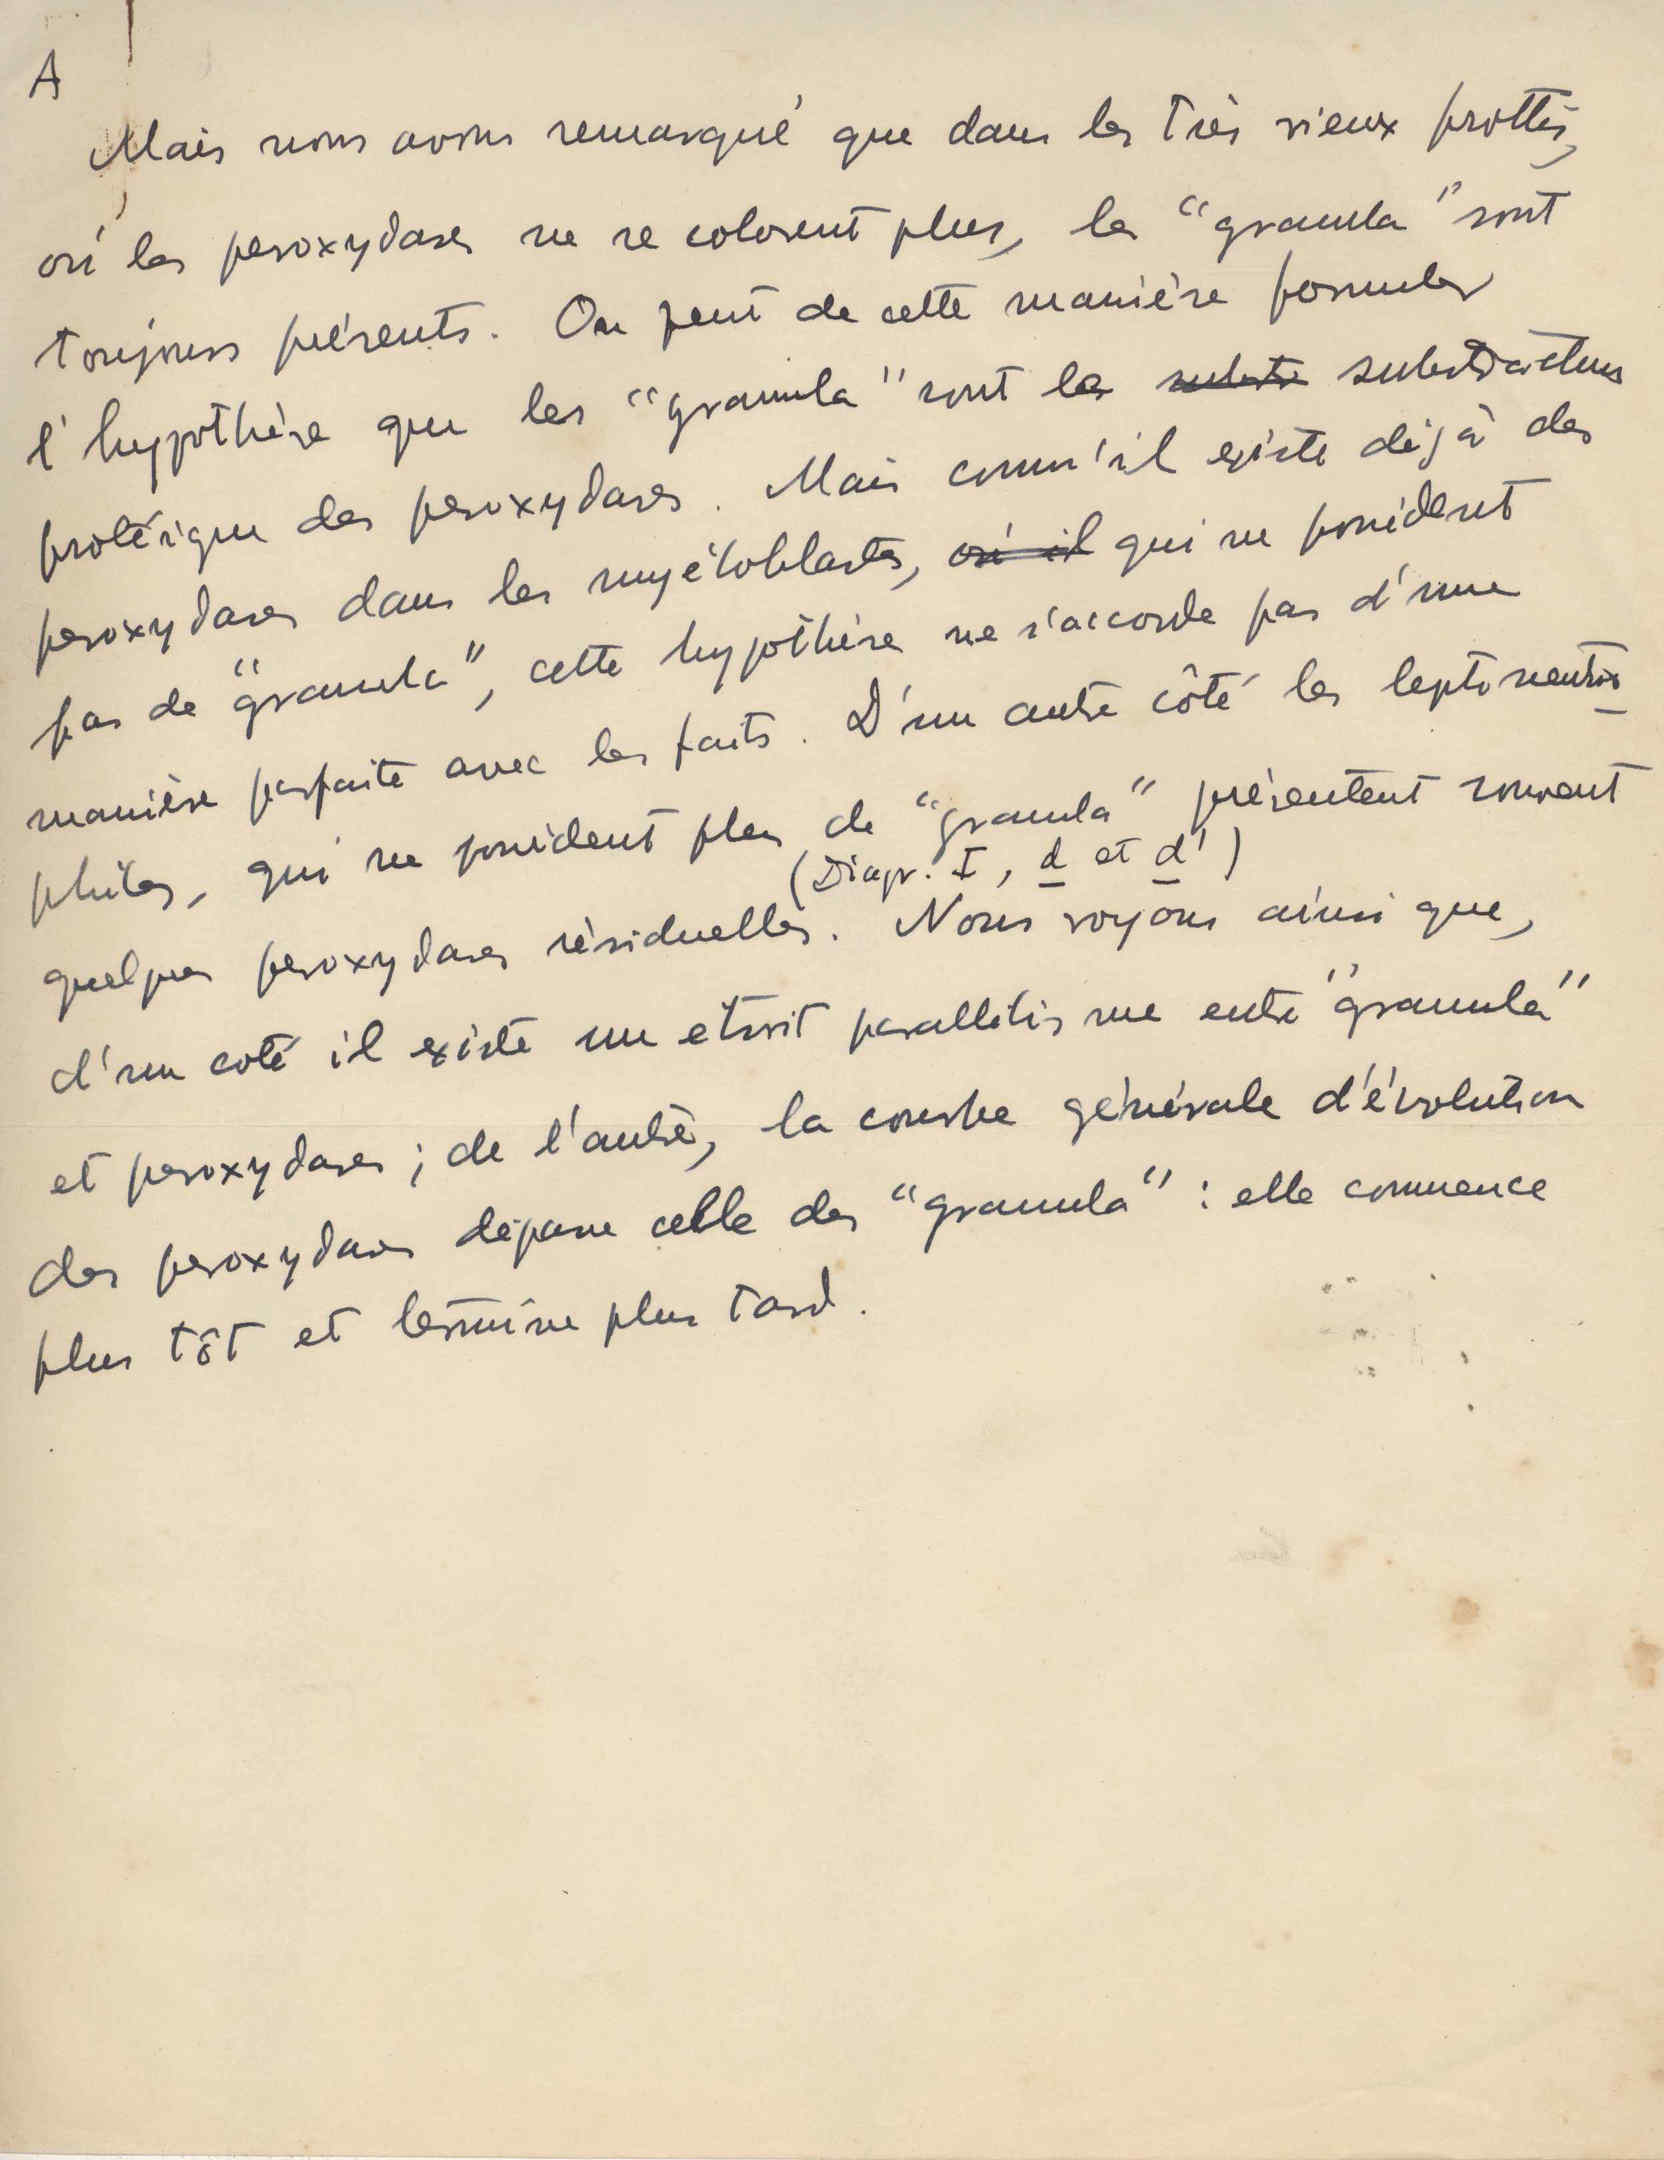 A
Mais nous avons remarqué que dans les très vieux frottis,
où les peroxydases ne se colorent plus, les "granula" sont
toujours présents. On peut de cette manière formuler
l'hypothèse que les "granula" sont les substra substractum
protéique des peroxydases. Mais comm'il existe déjà des
peroxydases dans les myéloblastes, où il qui ne possèdent
pas de "granula", cette hypothèse ne s'accorde pas d'une
manière parfaite avec les faits. D'un autre côté les leptoneutro-
philes, qui ne possèdent plus de "granula" présentent souvent
(Diagr. I, d et d')
quelques peroxydases résiduelles. Nous voyons ainsi que,
d'un coté il existe un etroit parallelisme entre "granula"
et peroxydases ; de l'autre, la courbe générale d'évolution
des peroxydases dépasse celle des "granula" : elle commence
plus tôt et termine plus tard.